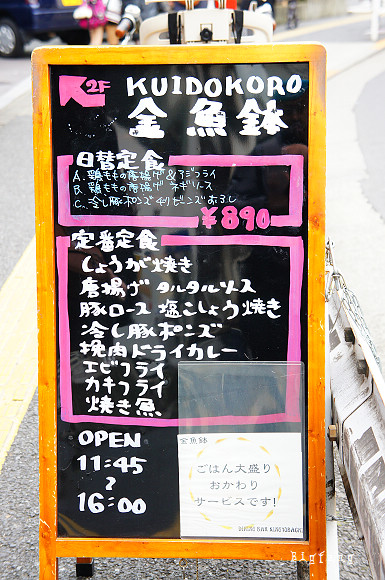 2F KUIDOKORO
金魚鉢
日替定食
A. 鶏ももの唐揚げ&アジフライ
B. 鶏ももの唐揚げ ネギソース
C. 冷し豚ポンズ おろし
¥890
定番定食
しょうが焼き
唐揚げタルタルソース
豚ロース塩こしょう焼き
冷し豚ポンズ
挽肉ドライカレー
エビフライ
カキフライ
焼き魚
OPEN
11:45
~
16:00
金魚鉢
ごはん大盛り
おかわり
サービスです!
DINING BAR KINGYOBACHI
Bigfang